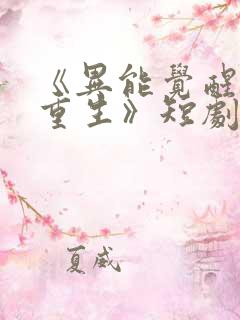 《異能覺醒
重生》短劇
夏威